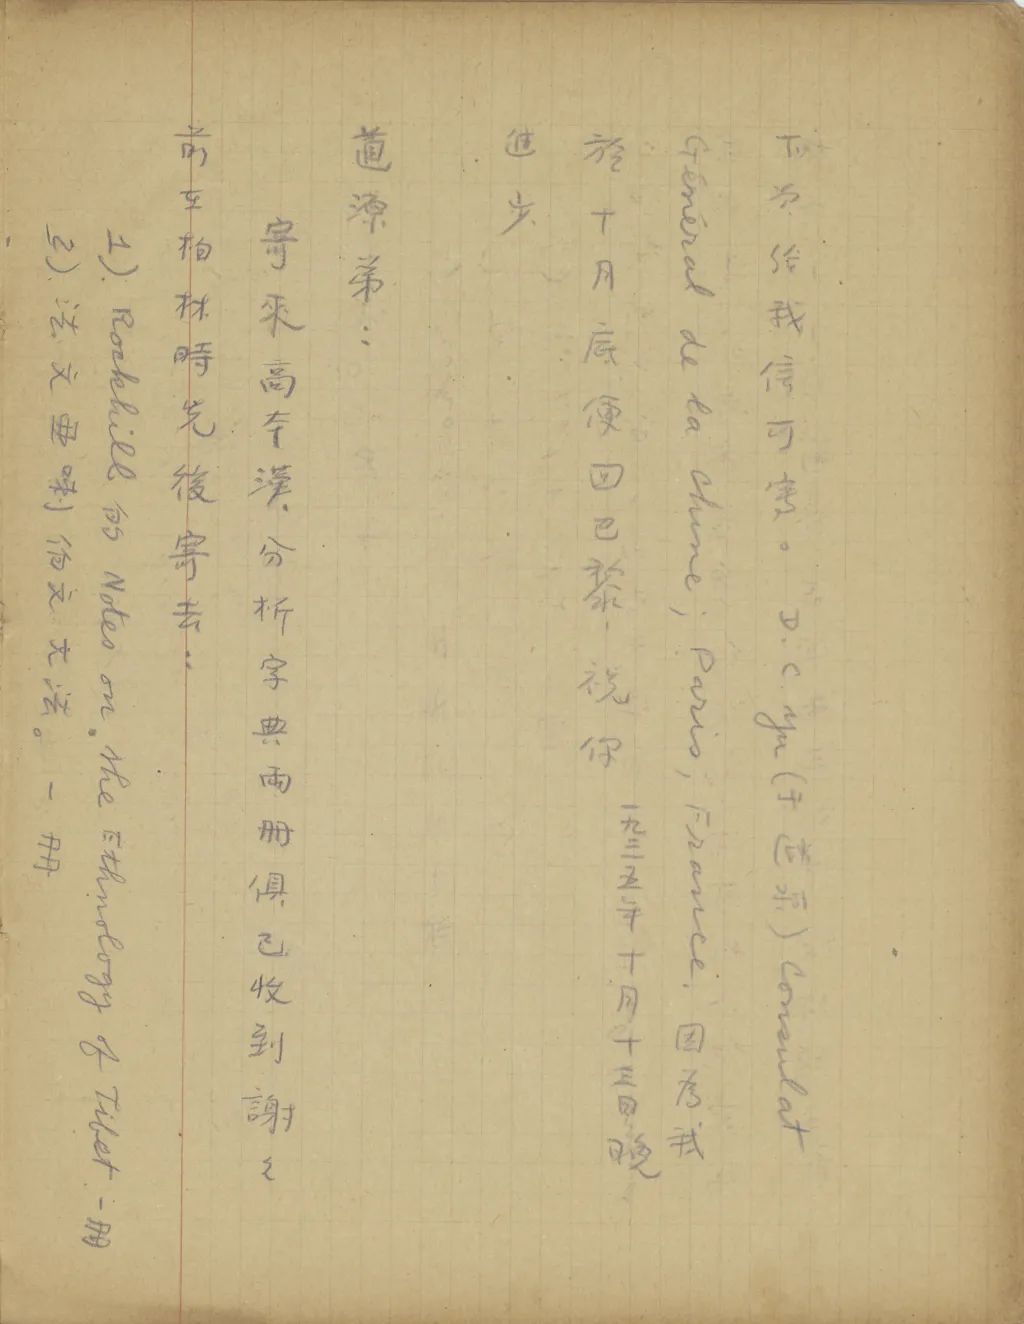 下次給我信可寄。D.C. Yu (于道泉) Consulat
Général de la Chine, Paris, France. 因為我
於十月底便回巴黎. 祝你
進步
一九三五年十月十三日晚
道源弟：
寄來高本漢. 分析字典兩冊俱已收到謝々
前在柏林時先後寄去：
1). Rockhill 的 Notes on the Ethnology of Tibet 一冊
2). 法文 喇伯文文法。一冊